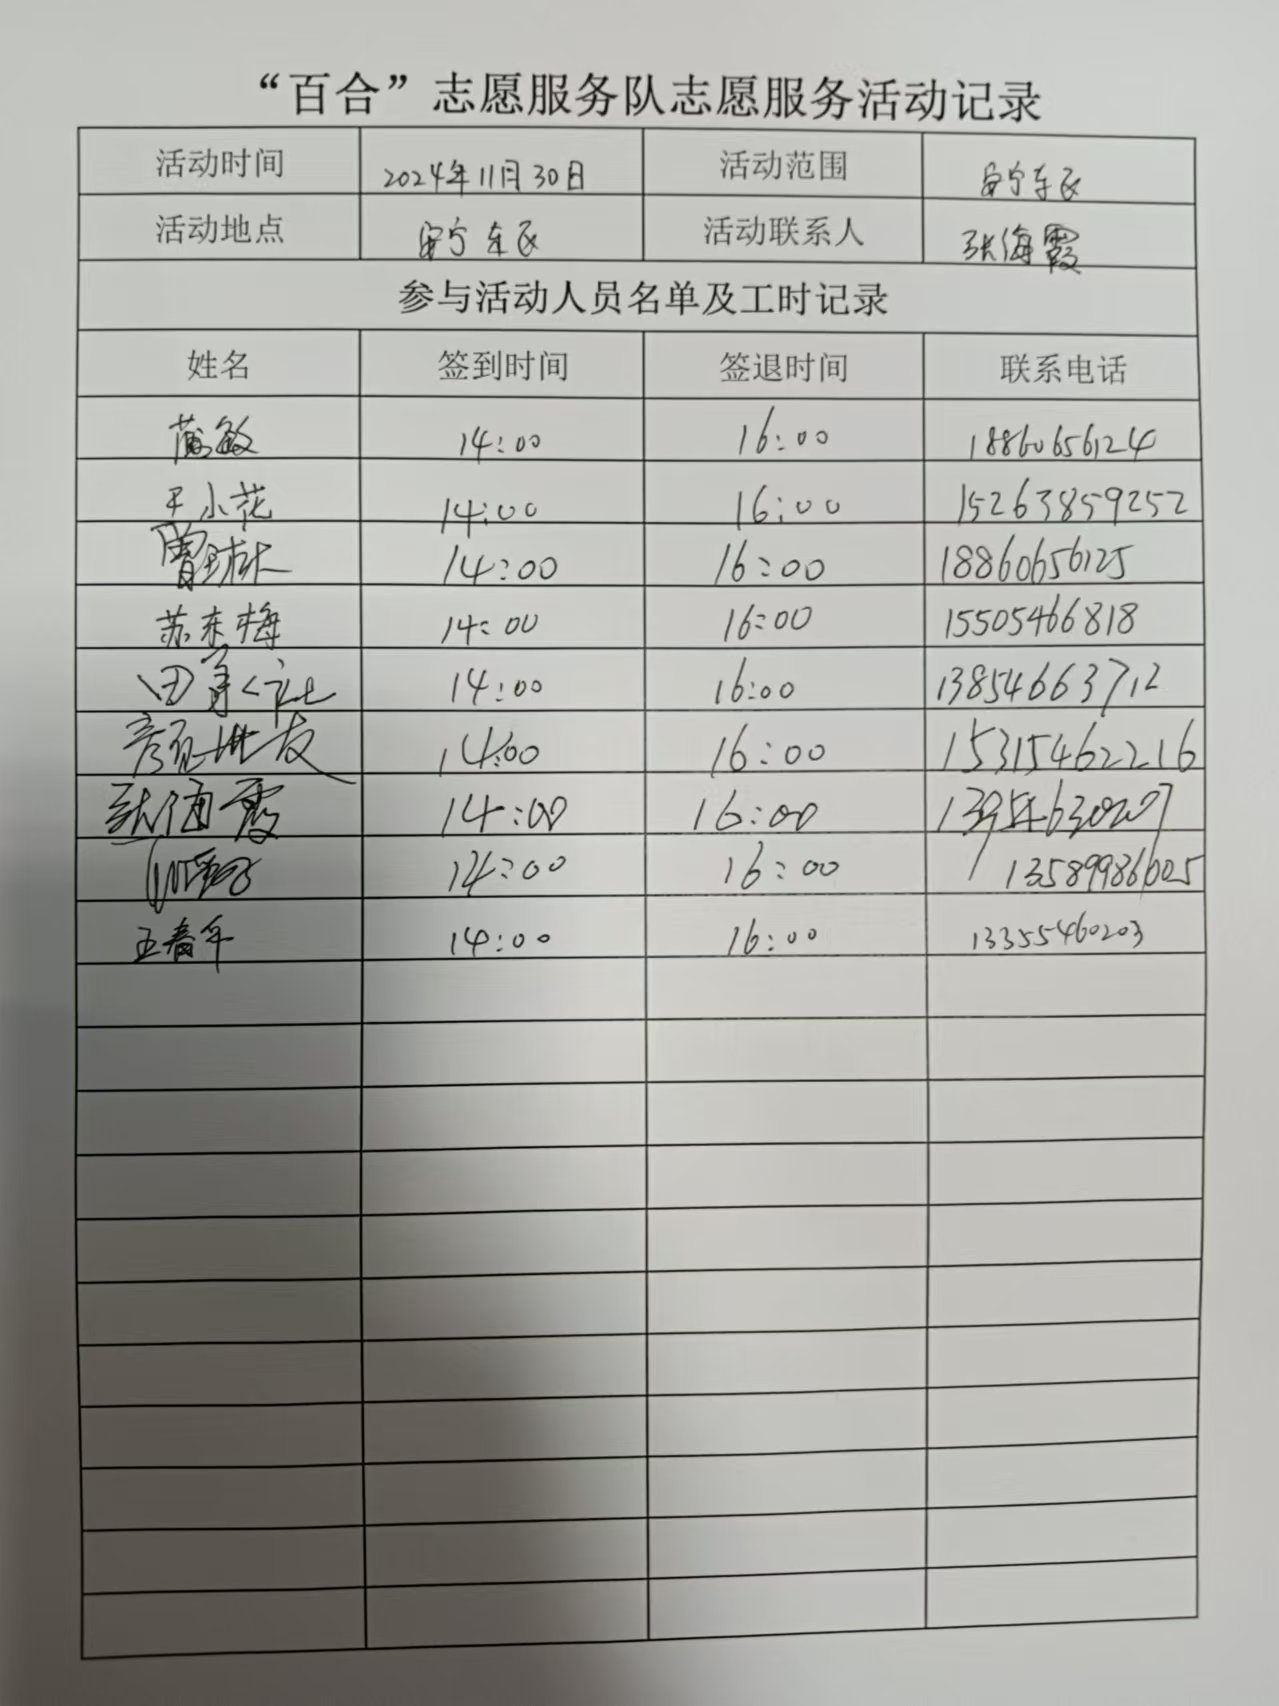 “百合”志愿服务队志愿服务活动记录
活动时间 2024年11月30日 活动范围 安宁东民
活动地点 安宁东民 活动联系人 张海霞
参与活动人员名单及工时记录
姓名 签到时间 签退时间 联系电话
蒲敏 14:00 16:00 18860656124
王小花 14:00 16:00 15263859252
14:00 16:00 18860656125
苏东梅 14:00 16:00 15505466818
14:00 16:00 13854663712
14:00 16:00 15315462216
张海霞 14:00 16:00
14:00 16:00 13589986025
王春年 14:00 16:00 13355460203